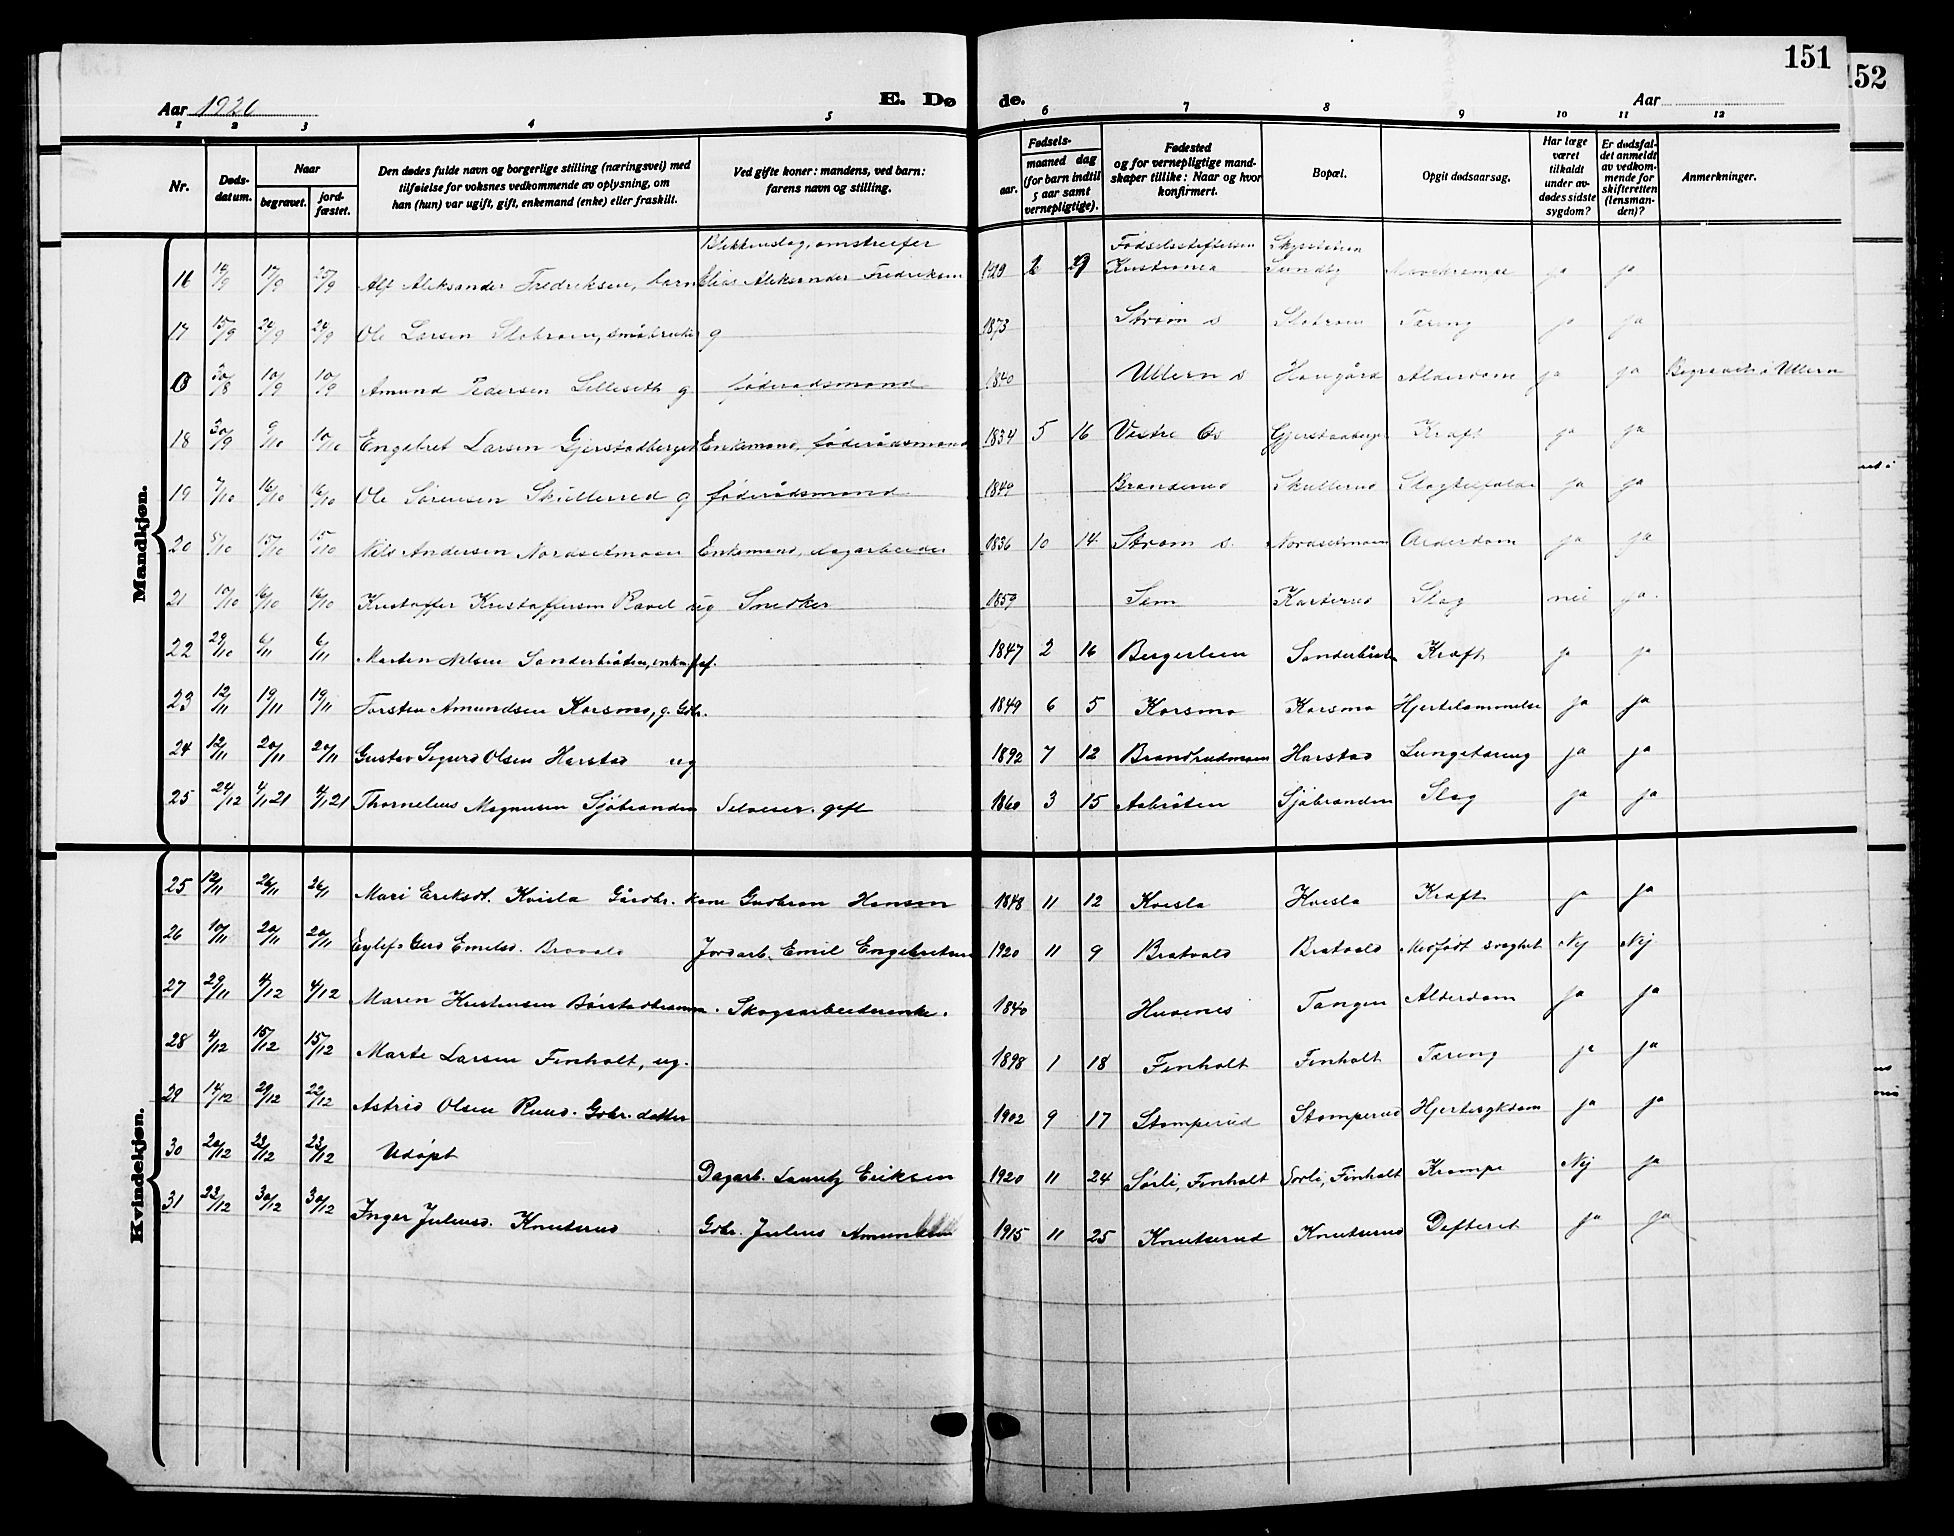 151
152
Aar 1920
E. Dø
de.
Aar
1 2 3 4 5 6 7 8 9 10 11 12
Nr.
Døds-
datum.
Naar
begravet.
jord-
fæstet.
Den dødes fulde navn og borgerlige stilling (næringsvei) med
tilføielse for voksnes vedkommende av oplysning, om
han (hun) var ugift, gift, enkemand (enke) eller fraskilt.
Ved gifte koner: mandens, ved barn:
farens navn og stilling.
Fødsels-
aar.
maaned dag
(for barn indtil
5 aar samt
vernepligtige).
Fødested
og for vernepligtige mand-
skaper tillike: Naar og hvor
konfirmert.
Bopæl.
Opgit dødsaarsag.
Har læge
været
tilkaldt
under av-
dødes sidste
sygdom?
Er dødsfal-
det anmeldt
av vedkom-
mende for
skifteretten
(lensman-
den)?
Anmerkninger.
Mandkjøn.
Blikkenslag, omstreifer Fødselsstiftelsen
16 14/9 17/9 25/9 Alf Aleksander Fredriksen, barn Elias Aleksander Fredriksen 1919 2 Kristiania Lundby ja ja
17 15/9 24/9 24/9 Ole Larsen g 1873 Strøm s Tæring ja ja
30/8 10/9 10/9 Amund Pedersen Lilleseth g føderådsmand 1840 Ullern s Haugård Alderdom ja ja Begravet i Ullern
18 30/9 9/10 10/10 Engebret Larsen Gjerstadberget Enkemand, føderådsmand 1834 5 16 Vestre Os Gjerstadberget Kræft ja ja
19 7/10 16/10 16/10 Ole Sørensen Skullerud g føderådsmand 1849 Branderud Skullerud Slagtilfælde ja ja
20 8/10 15/10 15/10 Nils Andersen Nordsetmoen Enkemand, dagarbeider 1836 10 14 Strøm s. Nordsetmoen Alderdom ja ja
21 10/10 16/10 16/10 Kristoffer Kristoffersen Ravel ug Snedker 1859 Slag nei ja
22 29/10 6/11 6/11 Marten Nilsen Sanderbråten, enkem. 1847 2 16 Sanderbråten Kræft ja ja
23 12/11 19/11 19/11 Torsten Amundsen Korsmo, g. Gdbr. 1849 6 5 Korsmo Korsmo Hjertelammelse ja ja
24 12/11 20/11 20/11 Gustav Sigurd Olsen Harstad ug 1892 7 12 Brandrudmoen Harstad Lungetæring ja ja
25 24/12 4/1 21 4/1 21 Thornelius Magnusen Sjøbranden Selveier. gift 1860 3 15 Aabråten Sjøbranden Slag ja ja
Kvindekjøn.
25 12/11 26/11 26/11 Mari Eriksdt. Kvisla Gårdbr. kone Gudbran Hansen 1848 11 12 Kvisla Kvisla Kræft ja ja
26 10/11 20/11 20/11 Gerd Emilsd. Jordarb. Emil Engebretsen 1920 11 9 Bratvold Bratvold Medfødt svaghet Nej Nej
27 29/11 4/12 4/12 Maren Kristensen Skogsarbeiderenke. 1840 Huvenes Tangen Alderdom ja ja
28 4/12 15/12 15/12 Marte Larsen Finholt, ug. 1898 1 18 Finholt Finholt Tæring ja ja
29 14/12 22/12 22/12 Astrid Olsen Ruud. Gbr. datter 1902 9 17 Stomperud Stomperud Hjertesykdom ja ja
30 20/12 23/12 23/12 Udøpt Dagarb. Lauritz Eriksen 1920 11 24 Sørli, Finholt Sørli, Finholt Krampe Nej ja
31 22/12 30/12 30/12 Inger Juliusd. Knutserud Gdbr. Julius Amundsen 1915 11 25 Knutserud Knutserud Defterit ja ja